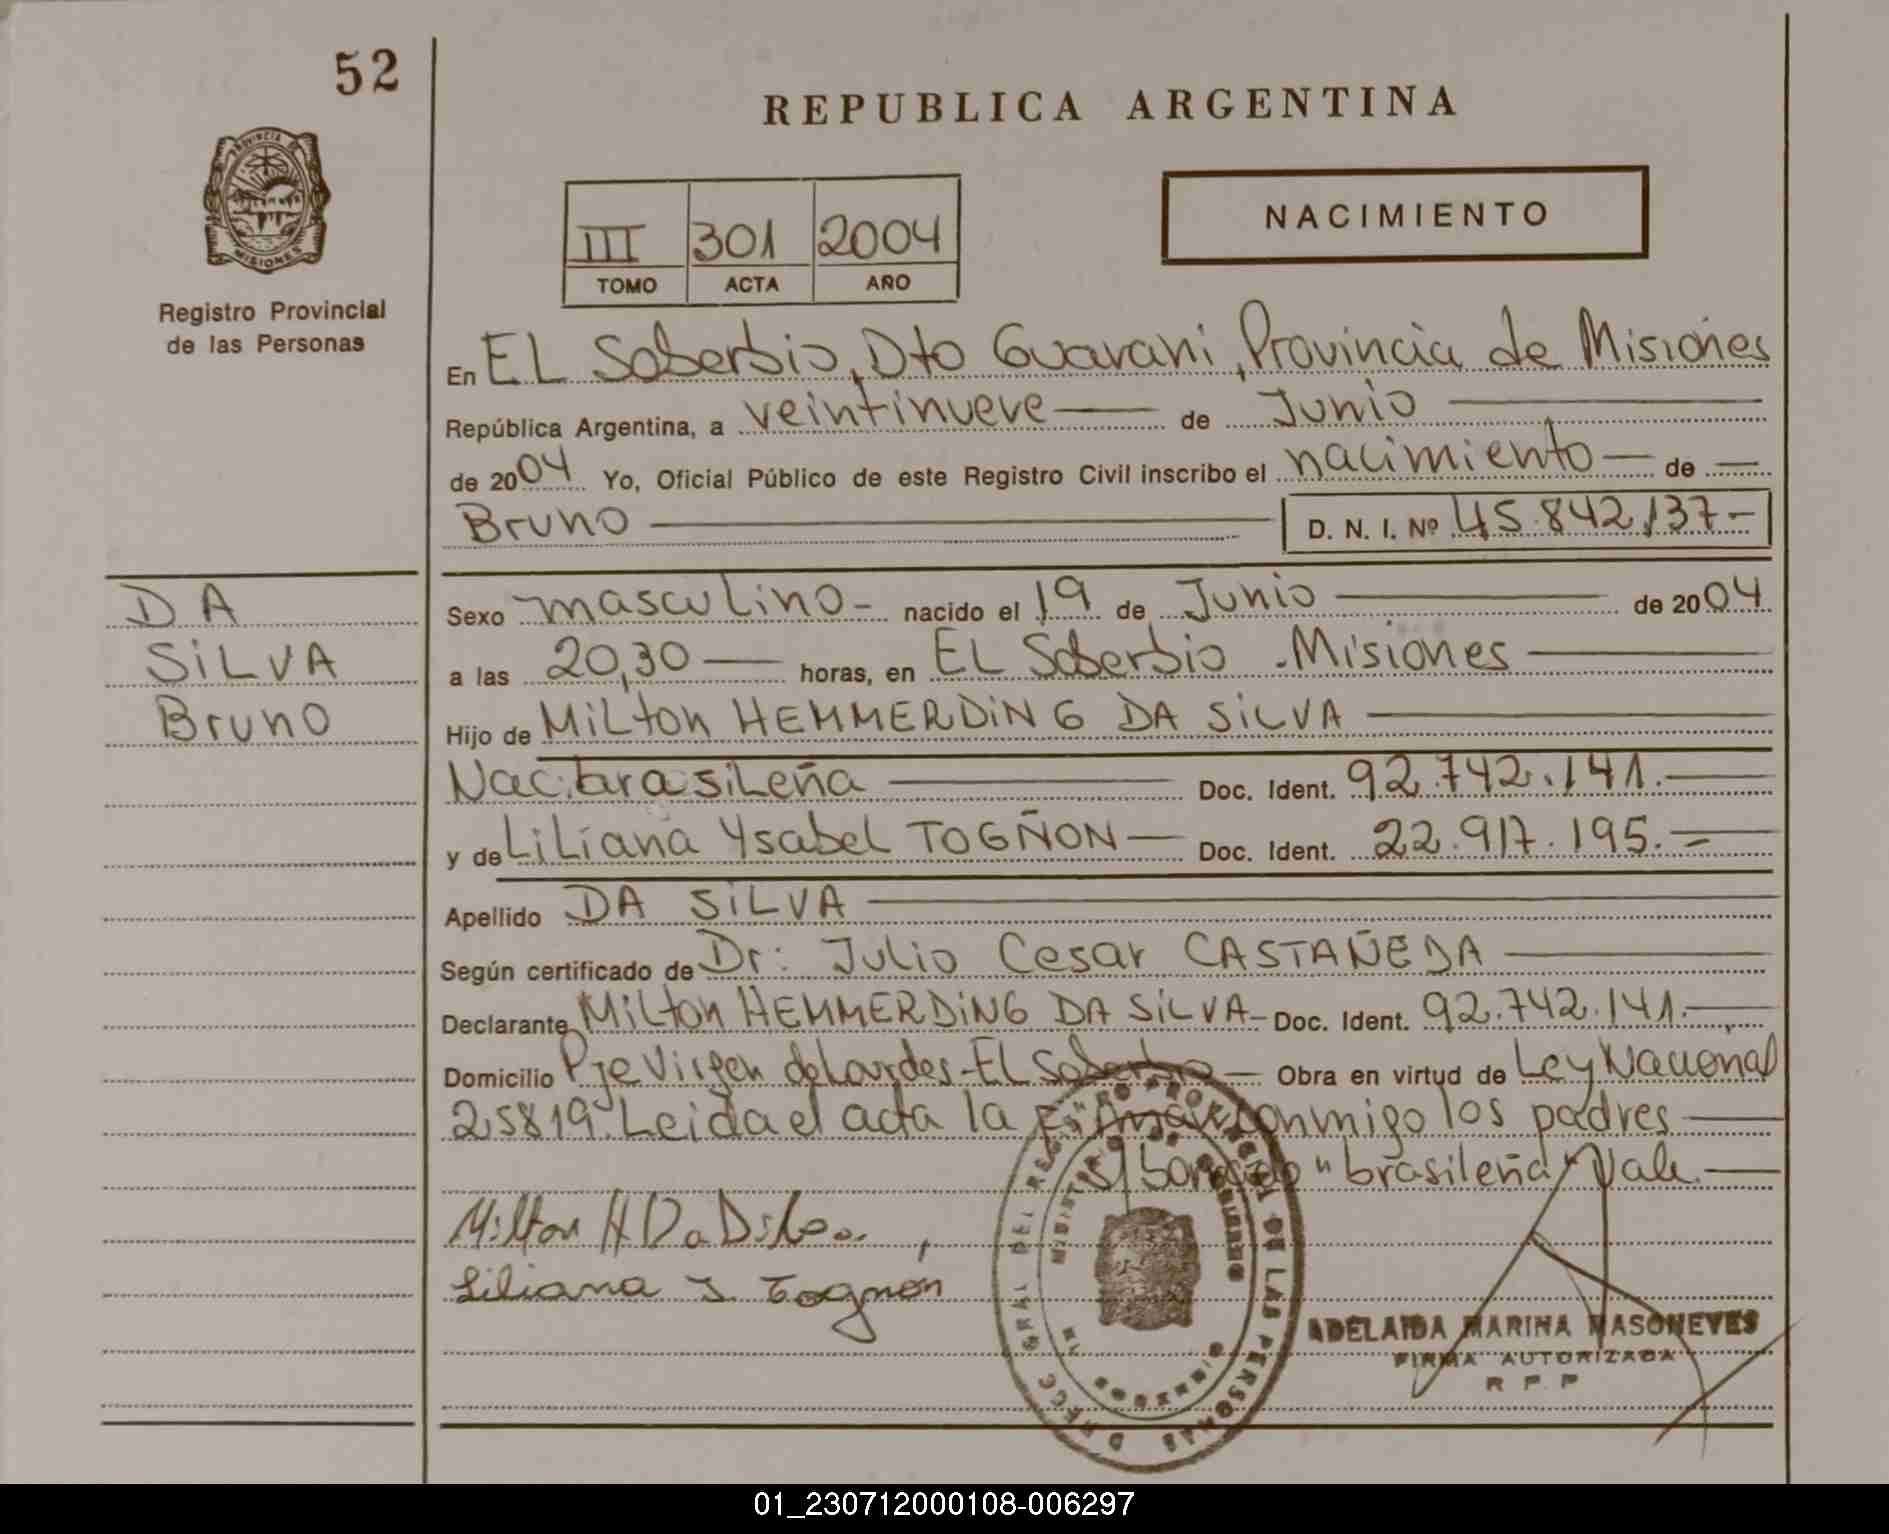 52
REPUBLICA ARGENTINA
PROVINCIA DE
MISIONES
Registro Provincial
de las Personas
III 301 2004
TOMO ACTA AÑO
NACIMIENTO
En EL Soberbio, Dto Guarani, Provincia de Misiones
República Argentina, a veintinueve de Junio
de 2004 Yo, Oficial Público de este Registro Civil inscribo el nacimiento de
Bruno D. N. I. Nº 45.842.137-
DA
SILVA
Bruno
Sexo masculino- nacido el 19 de Junio de 2004
a las 20,30 horas, en EL Soberbio - Misiones
Hijo de MiLton HEMMERDING DA SILVA
Nac: brasileña Doc. Ident. 92.742.141.
y de LiLiana Ysabel TOGÑON Doc. Ident. 22.917.195.-
Apellido DA SILVA
Según certificado de Dr: Julio Cesar CASTAÑEDA
Declarante MiLton HEMMERDING DA SILVA- Doc. Ident. 92.742.141.
Domicilio Pje Virgen de Lourdes - EL Soberbio Obra en virtud de Ley Nacional
25819. Leida el acta la firman conmigo los padres
s/ borrado "brasileña" Vale.
Milton H Da Silva
Liliana Y. Togñon
DIRECC GRAL DEL REGISTRO PROVINCIAL DE LAS PERSONAS
MINISTERIO DE GOBIERNO
MISIONES
ADELAIDA MARINA MASONEVES
FIRMA AUTORIZADA
R P P
01_230712000108-006297